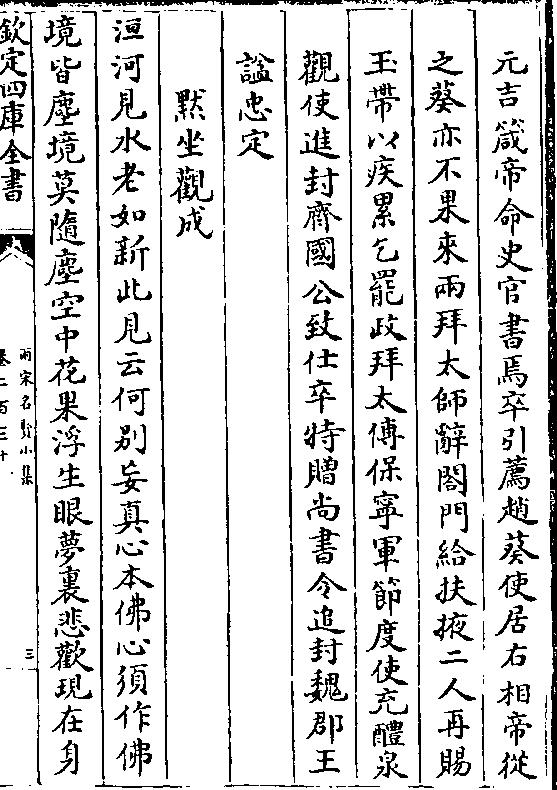 元吉箴帝命史官書焉卒引薦趙葵使居右相帝從
之葵亦不果來兩拜太師辭閤門給扶掖二人再賜
玉帶以疾累乞罷政拜太傅保寧軍節度使充醴泉
觀使進封齊國公致仕卒特贈尚書令追封魏郡王
諡忠定
默坐觀成
洹河見水老如新此見云何别妄真心本佛心須作佛
境皆塵境莫隨塵空中花果浮生眼夢裏悲歡現在身
欽定四庫全書
兩宋名賢小集
卷二百三十
三